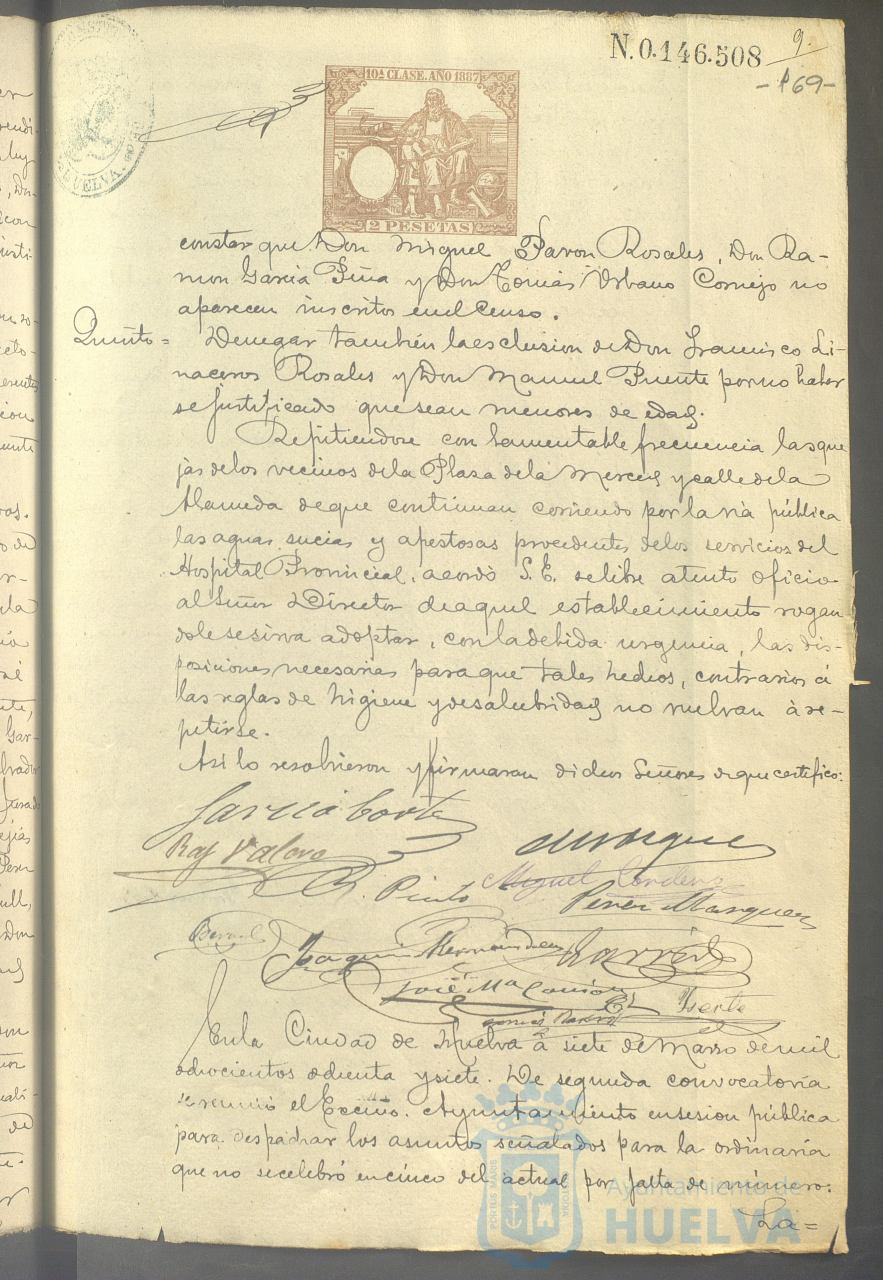 N. 0.146.508
9.
-169-
10ª CLASE. AÑO 1887
2 PESETAS
HUELVA
constar que Don Miguel Pavon Rosales, Don Ra-
mon Garcia Piña y Don Tomás Urbano Cornejo no
aparecen inscritos en el Censo.
Quinto= Denegar también la esclusion de Don Francisco Li-
naceros Rosales y Don Manuel Puente por no haber
se justificado que sean menores de edad.
Repitiendose con lamentable frecuencia las que
jas de los vecinos de la Plaza de la Merced y calle de la
Alameda de que continuan corriendo por la via pública
las aguas sucias y apestosas procedentes de los servicios del
Hospital Provincial, acordó S.E. se libre atento oficio
al Señor Director de aquel establecimiento rogan
dole se sirva adoptar, con la debida urgencia, las dis-
posiciones necesarias para que tales hechos, contrarios á
las reglas de higiene y de salubridad no vuelvan á re-
petirse.
Asi lo resolvieron y firmaran dichos Señores de que certifico:
Garcia Cortes
Raf Valero
R. Pinto Miguel Cordero
Perez Marquez
Bernal Joaquin Hernandez
José Mª
En la Ciudad de Huelva á siete de Marzo de mil
ochocientos ochenta y siete. De segunda convocatoria
se reunió el Excmo. Ayuntamiento en sesion pública
para despachar los asuntos señalados para la ordinaria
que no se celebró en cinco del actual por falta de número:
La=
PORTUS MARIS
CUSTODIA
Ayuntamiento de
HUELVA